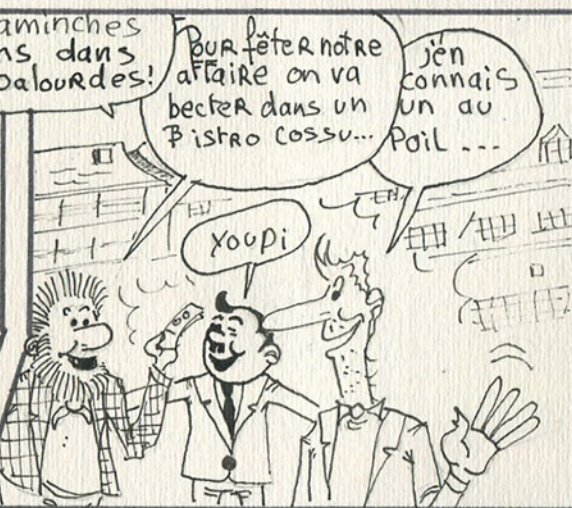 aminches
ns dans
palourdes!
Pour fêter notre
affaire on va
becter dans un
Bistro cossu...
j'en
connais
un au
Poil ...
Youpi